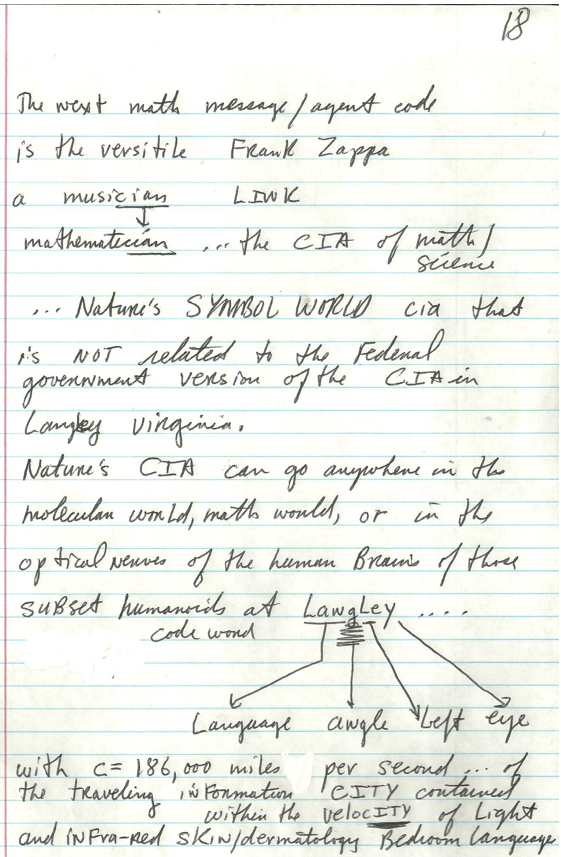 18
The next math message/agent code
is the versitile Frank Zappa
a musician LINK
mathematecian ... the CIA of math/
science
... Nature's SYMBOL WORLD cia that
is NOT related to the Federal
government version of the CIA in
Langley Virginia.
Nature's CIA can go anywhere in the
molecular world, math world, or in the
optical nerves of the human Brains of those
subset humanoids at Langley ....
code word
Language angle Left eye
with c= 186,000 miles per second ... of
the traveling inFormation CITY contained
within the velocITY of Light
and inFra-red SKIN/dermatology Bedroom Language